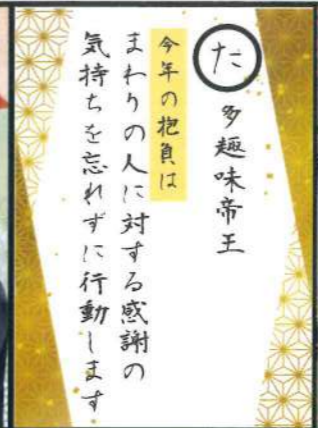 た
多趣味帝王
今年の抱負は
まわりの人に対する感謝の
気持ちを忘れずに行動します